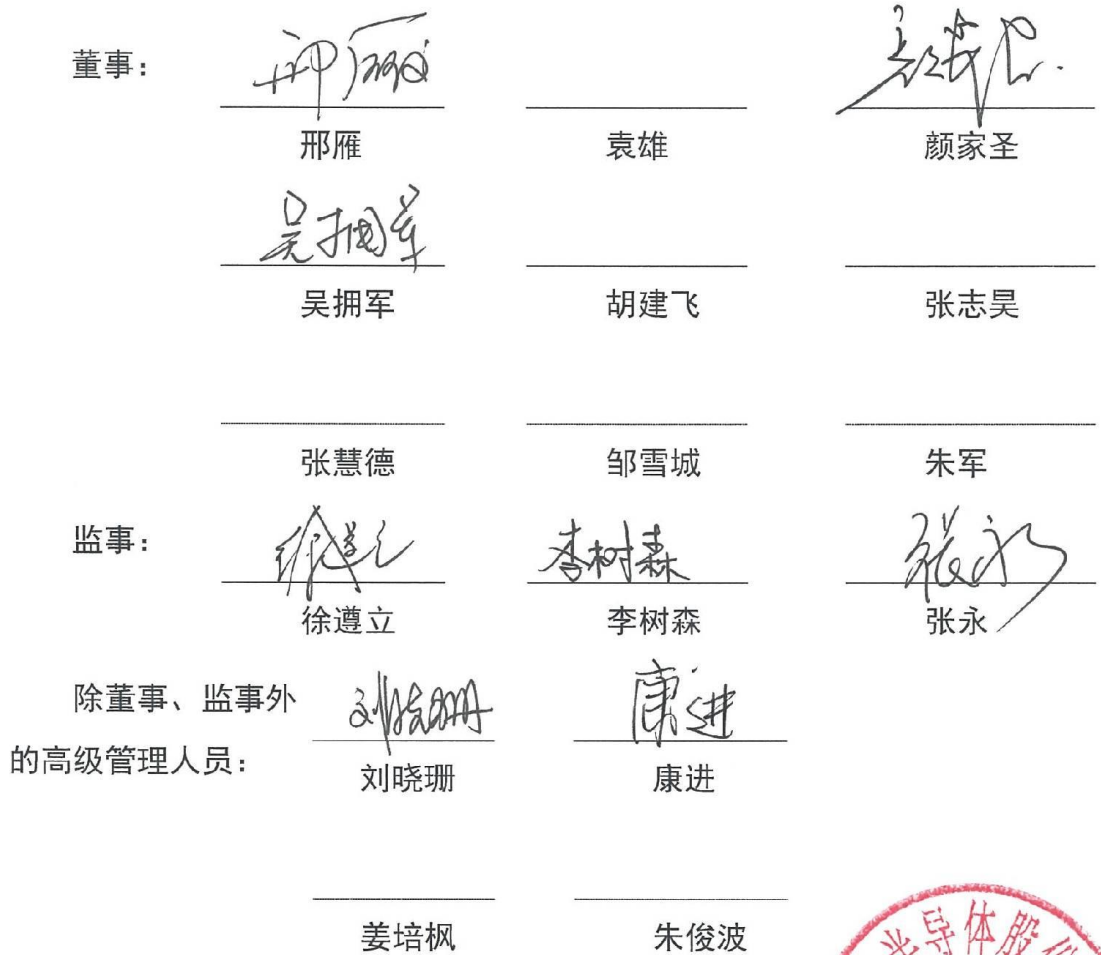 董事：
邢雁 袁雄 颜家圣
吴拥军
吴拥军 胡建飞 张志昊
张慧德 邹雪城 朱军
监事：
李树森 张永
徐遵立 李树森 张永
除董事、监事外
的高级管理人员：
康进
刘晓珊 康进
姜培枫 朱俊波
半导体股份